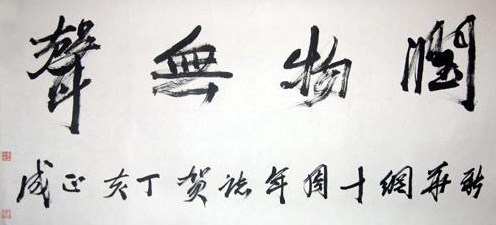 潤物無聲
新華網十周年誌賀丁亥正成